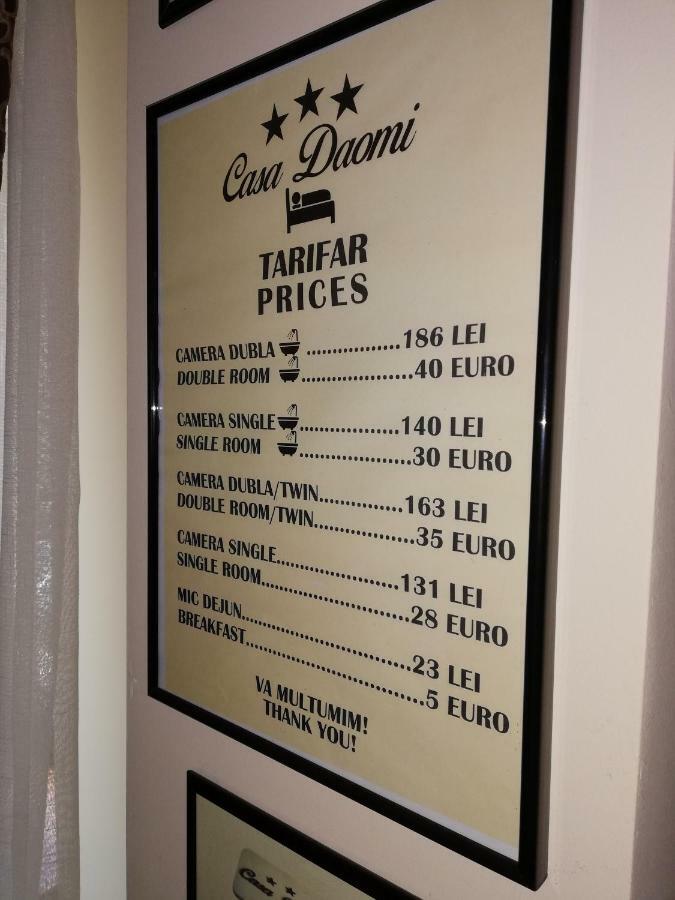 Casa Daomi
TARIFAR
PRICES
CAMERA DUBLA ..................186 LEI
DOUBLE ROOM .....................40 EURO
CAMERA SINGLE ...................140 LEI
SINGLE ROOM .....................30 EURO
CAMERA DUBLA/TWIN...............163 LEI
DOUBLE ROOM/TWIN..................35 EURO
CAMERA SINGLE......................131 LEI
SINGLE ROOM..........................28 EURO
MIC DEJUN..............................23 LEI
BREAKFAST...............................5 EURO
VA MULTUMIM!
THANK YOU!
Casa